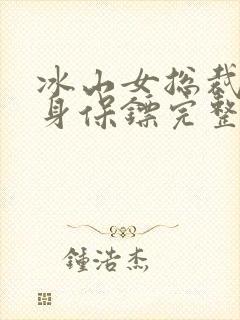 冰山女总裁
身保镖完整
锺浩杰